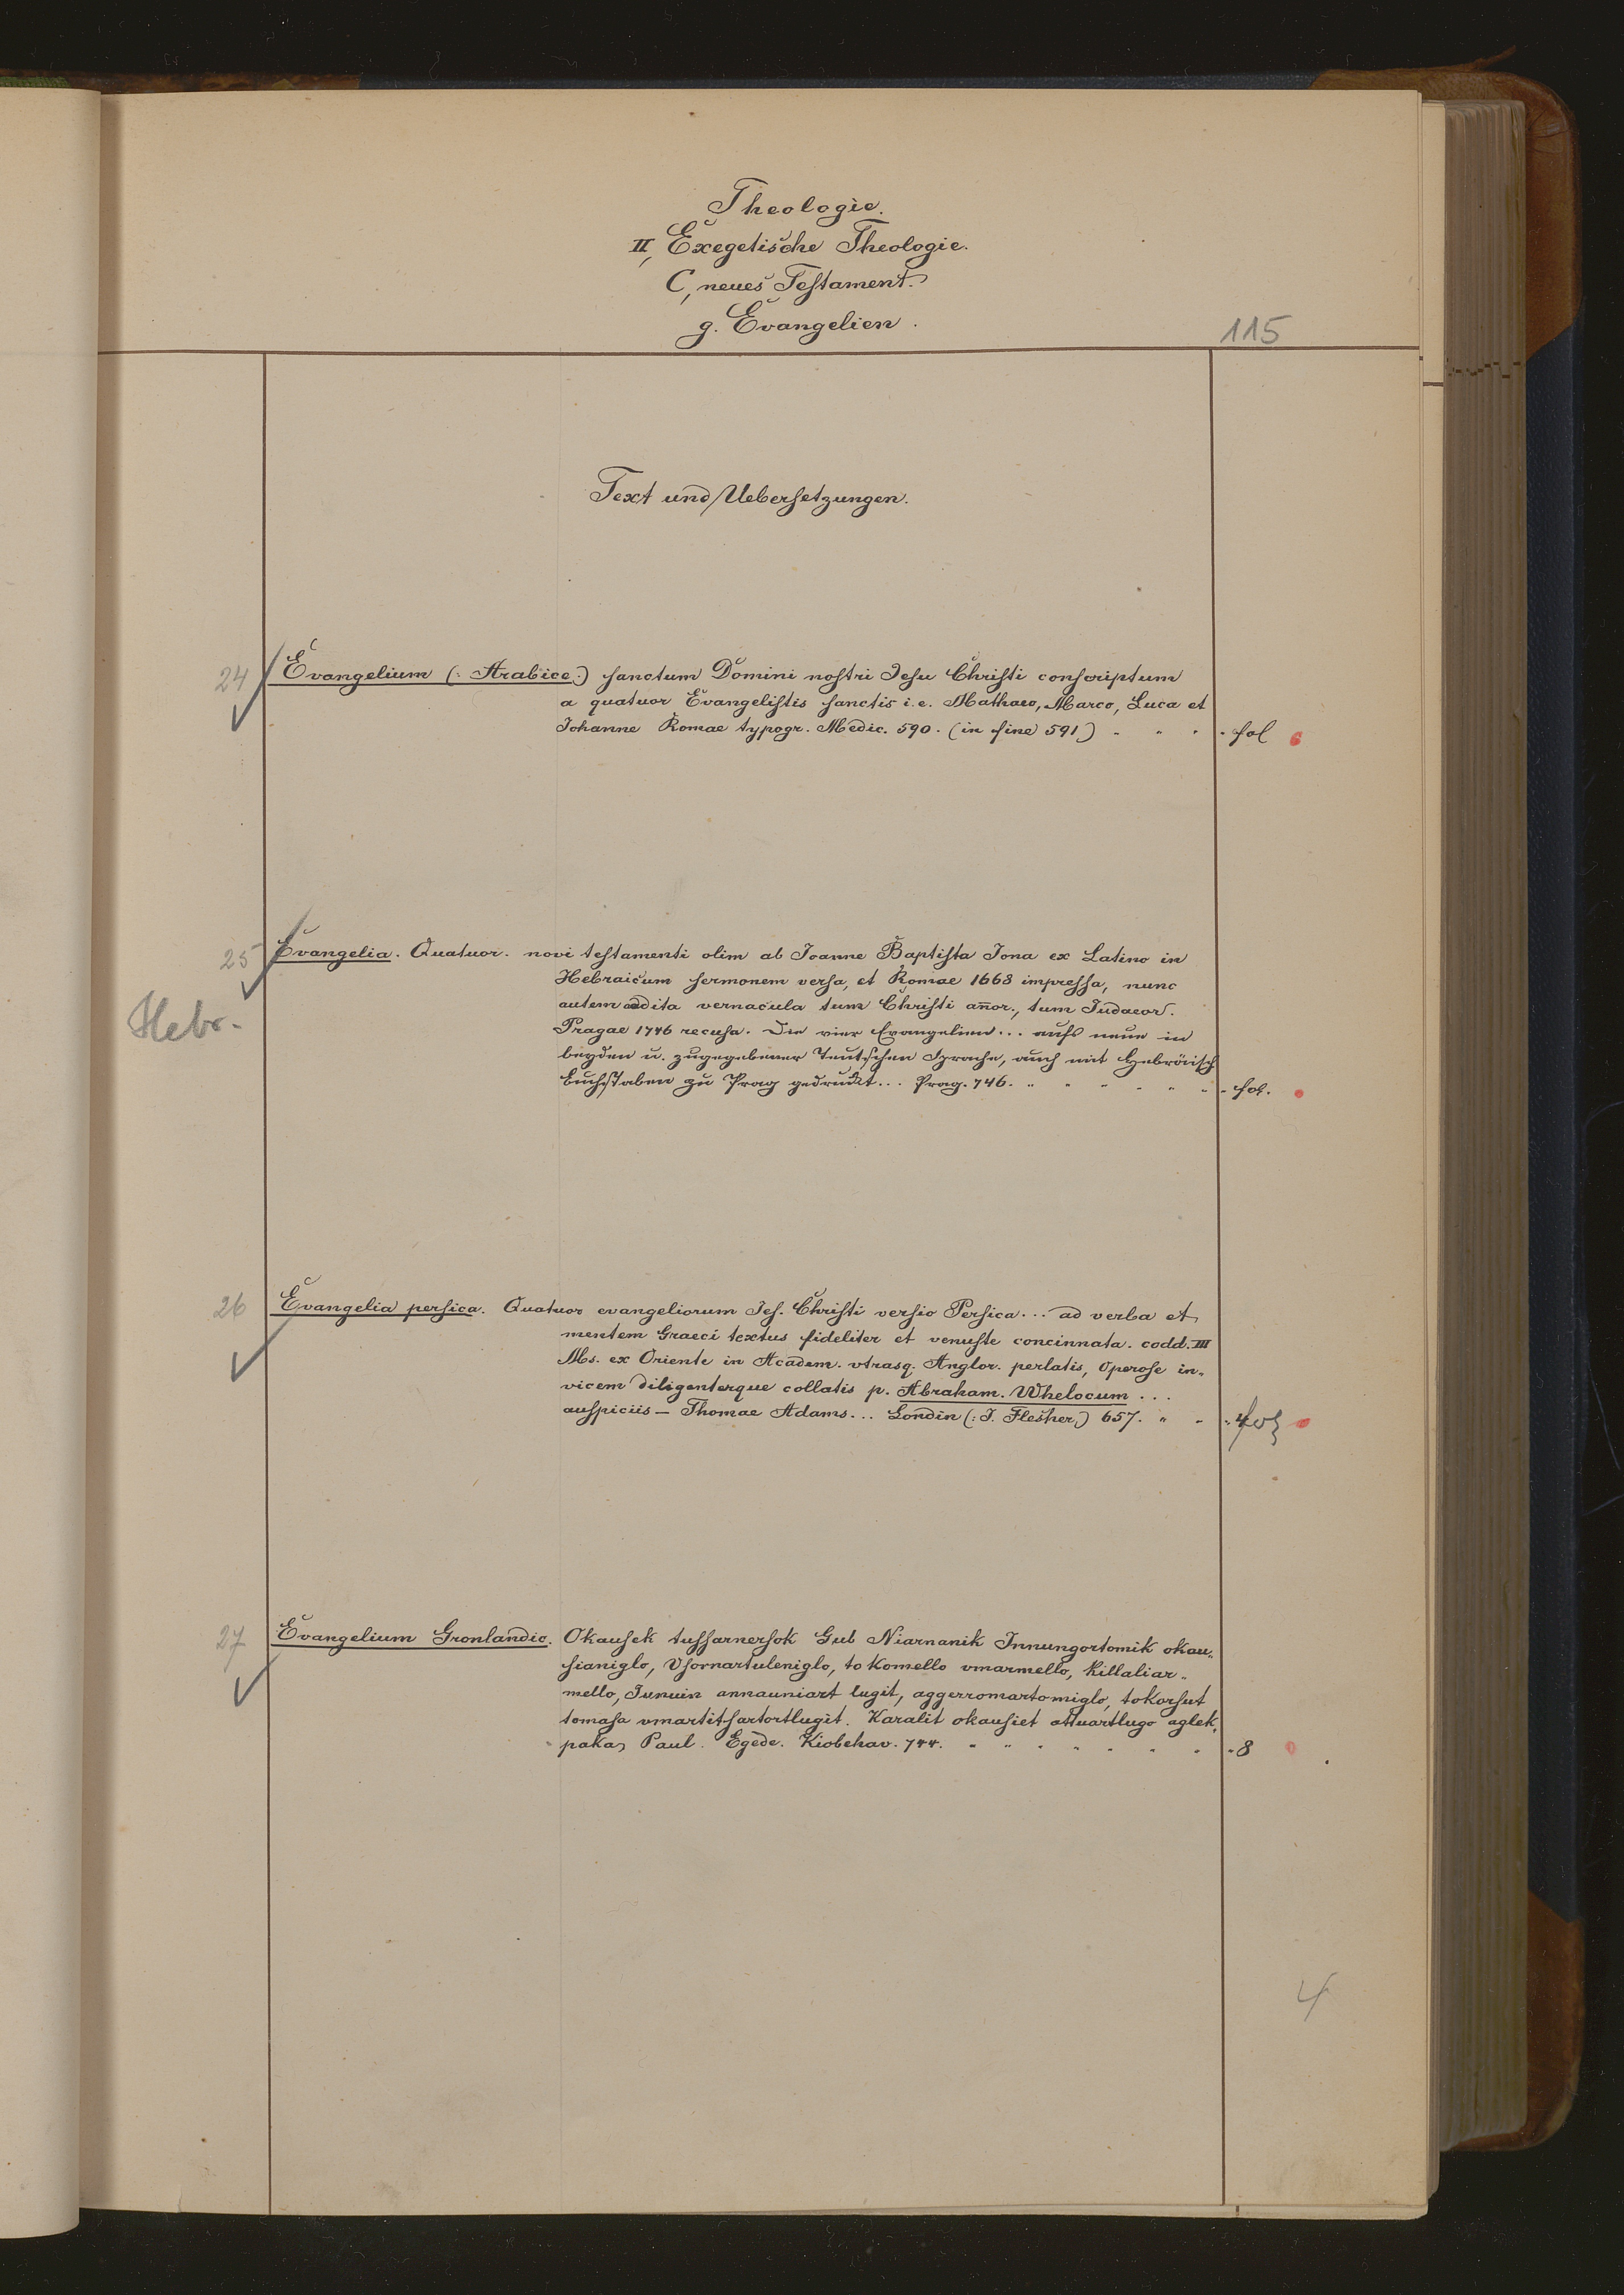 Theologie.
II, Exegetische Theologie.
C, neues Testament.
g. Evangelien.
115
Text und Uebersetzungen.
24 Evangelium (: Arabice:) sanctum Domini nostri Jesu Christi conscriptum
a quatuor Evangelistis sanctis i.e. Mathaeo, Marco, Luca et
Johanne Romae typogr. Medic. 590. (in fine 591) " " " fol
25 Evangelia. Quatuor. novi testamenti olim ab Joanne Baptista Jona ex Latino in
Hebraicum sermonem versa, et Romae 1668 impressa, nunc
autem addita vernacula tum Christi añor., tum Judaeor.
Hebr.
Pragae 1746 recusa. Die vier Evangelien... aufs neue in
beyden u. zugegebener Teutschen Sprache, auch mit Hebräisch
Buchstaben zu Prag gedruckt... Prag. 746. " " " " " " fol.
26 Evangelia persica. Quatuor evangeliorum Jes. Christi versio Persica... ad verba et
mentem Graeci textus fideliter et venuste concinnata. codd. III
Ms. ex Oriente in Academ. utrasq. Anglor. perlatis, Operose in-
vicem diligenterque collatis p. Abraham. Whelocum...
auspiciis — Thomae Adams... Londin (: J. Flesher.) 657. " " fol
27 Evangelium Gronlandic. Okausek tussarnersok Gub Niarnanik Innungortomik okau-
sianiglo, Usornartuleniglo, to Komello umarmello, Killaliar-
mello, Innuin annauniart lugit, aggerromartomiglo, tokorsut
tomasa umartitsartortlugit. Karalit okausiet attuartlugo aglek,
pakas Paul. Egede. Kiobehav. 744. " " " " " " " 8
4